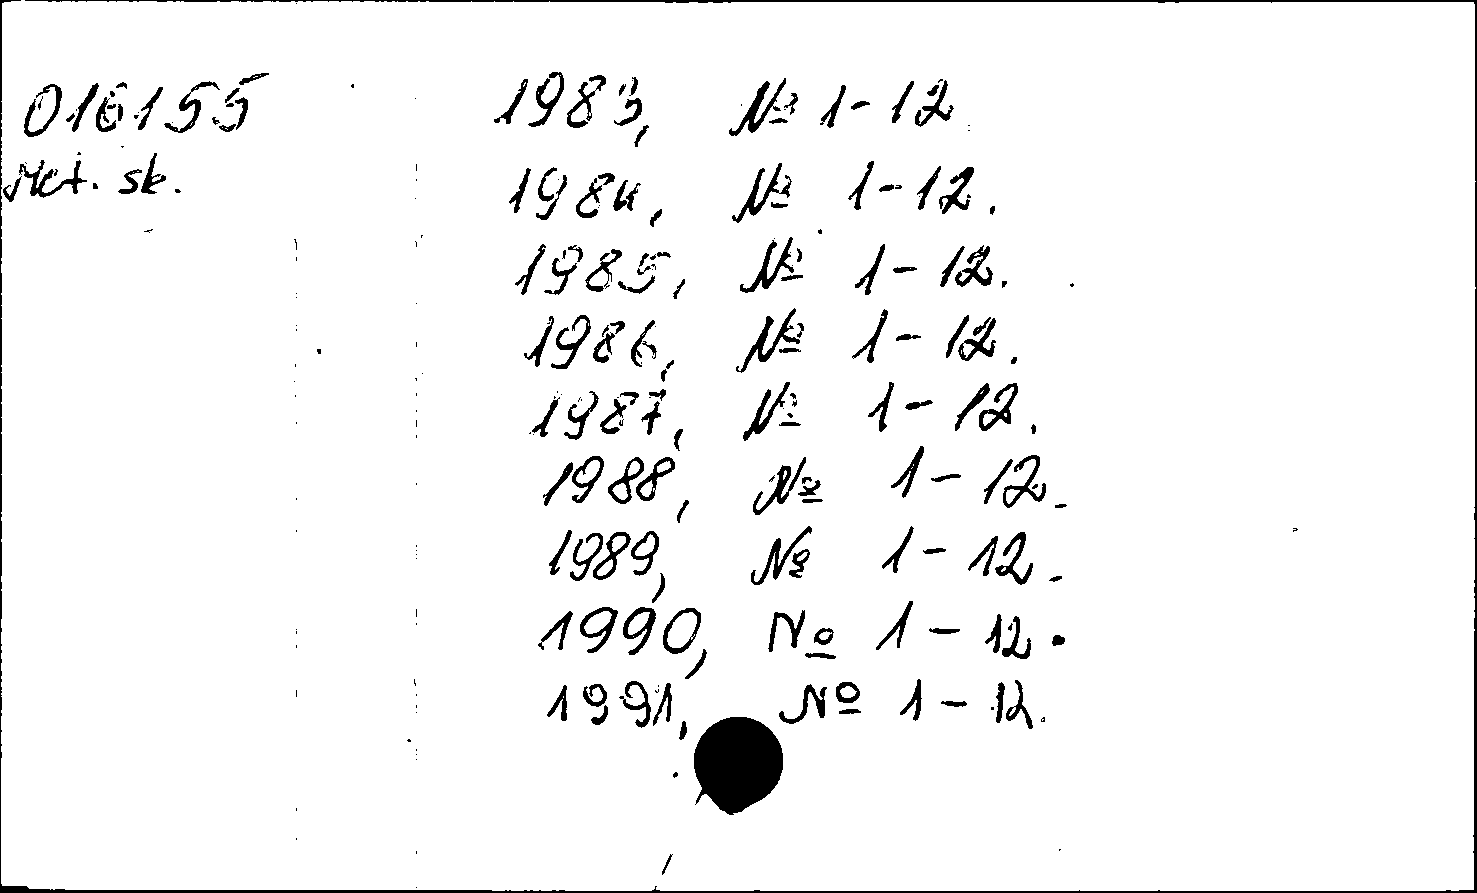 016155
Met. sk.
1983, № 1-12
1984, № 1-12.
1985, № 1-12.
1986, № 1-12.
1987, № 1-12.
1988, № 1-12.
1989, № 1-12.
1990, № 1-12.
1991, № 1-12.